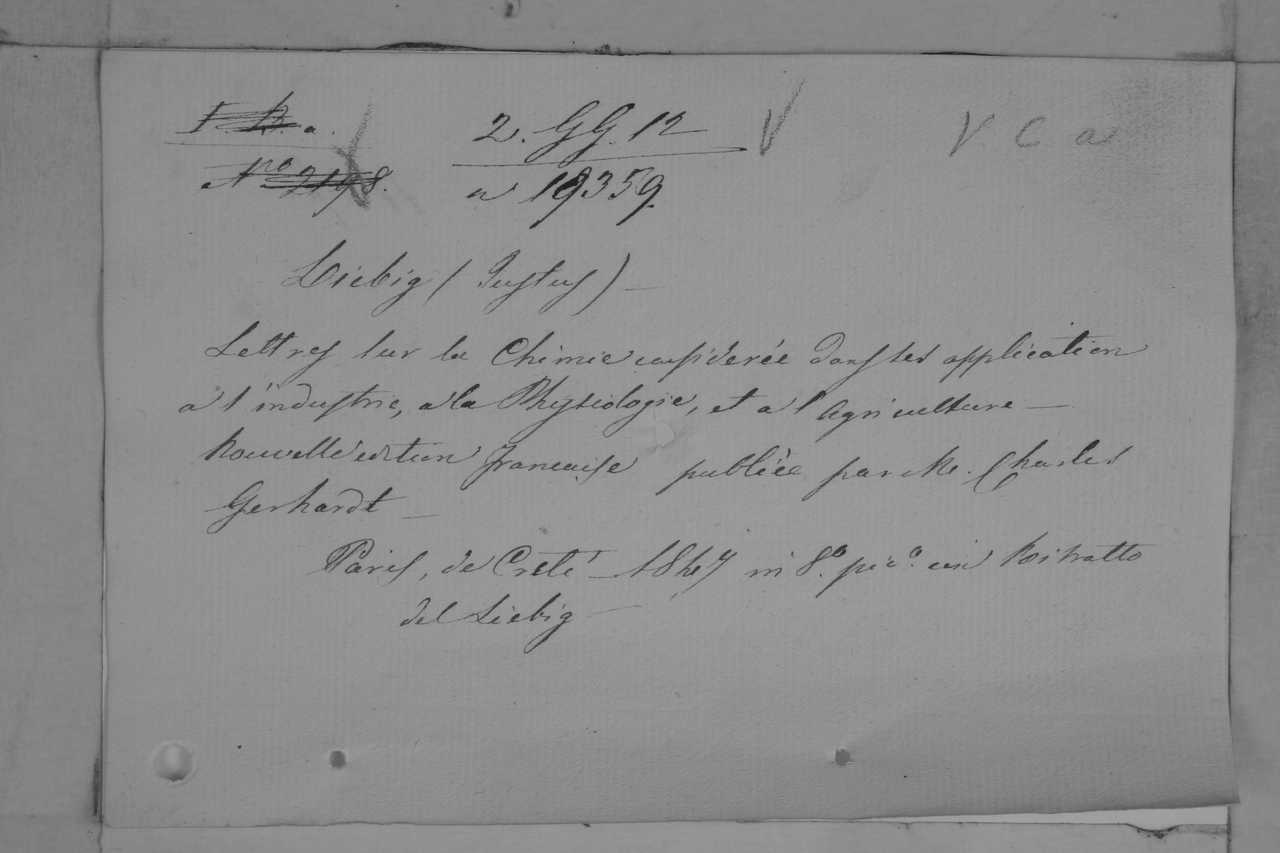 2. GG. 12 V V C a
Nro 2198.
a 19359.
Liebig (Justus) —
Lettres sur la Chimie considerée dans ses application
a l'industrie, a la Physiologie, et a l'agriculture —
Nouvelle edition francaise publiée par Mr. Charles
Gerhardt —
Paris, de Crété — 1847 in 8.º picº. con Ritratto
del Liebig —